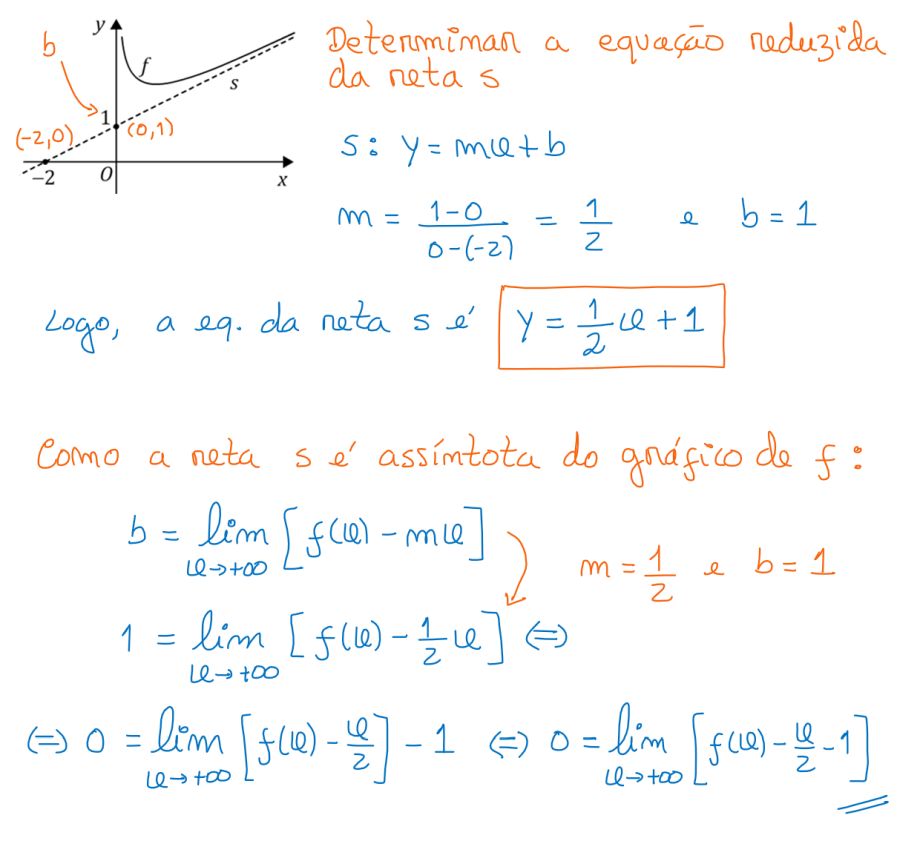 y
b
f
s
1
(-2,0)
(0,1)
−2
O
x
Determinar a equação reduzida
da reta s
s: y = mx + b
m = \frac{1-0}{0-(-2)} = \frac{1}{2} e b = 1
Logo, a eq. da reta s é y = \frac{1}{2}x + 1
Como a reta s é assíntota do gráfico de f :
b = \lim_{x→+∞} [f(x) - mx]
m = \frac{1}{2} e b = 1
1 = \lim_{x→+∞} [f(x) - \frac{1}{2}x] ⇔
⇔ 0 = \lim_{x→+∞} [f(x) - \frac{x}{2}] - 1 ⇔ 0 = \lim_{x→+∞} [f(x) - \frac{x}{2} - 1]